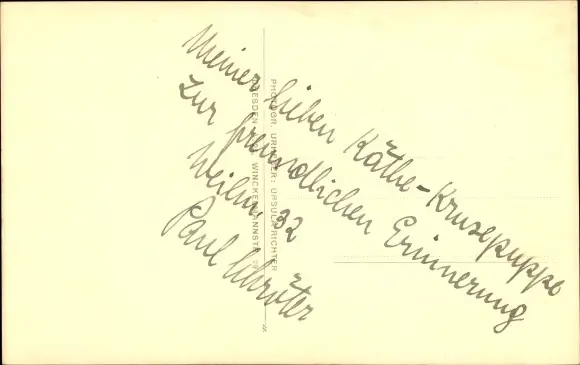 Meiner lieben Käthe-Krusepuppe
zur freundlichen Erinnerung
Weihn. 32
Paul Schröter
PHOTOGR. URHEBER: URSULA RICHTER
DRESDEN WINCKELMANNSTR.